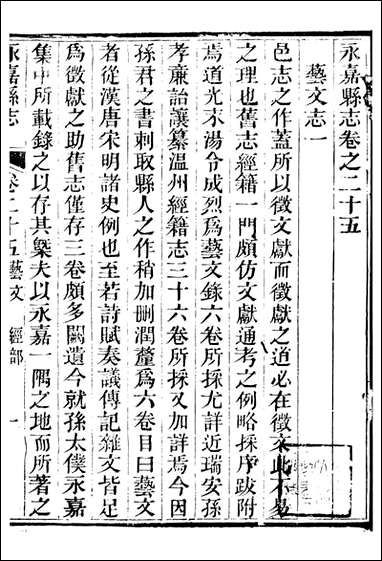 永嘉縣志卷之二十五
藝文志一
邑志之作蓋所以徵文獻而徵獻之道必在徵文此不易
之理也舊志經籍一門頗仿文獻通考之例略採序跋附
焉道光不湯令成烈爲藝文錄六卷所採尤詳近瑞安孫
孝廉詒讓纂溫州經籍志三十六卷所採又加詳焉今因
孫君之書刺取縣人之作稍加刪潤釐爲六卷目曰藝文
者從漢唐宋明諸史例也至若詩賦奏議傳記雜文皆足
爲徵獻之助舊志僅存三卷頗多闕遺今就孫太僕永嘉
集中所載錄之以存其槩夫以永嘉一隅之地而所著之
永嘉縣志
卷二十五藝文 經部
一